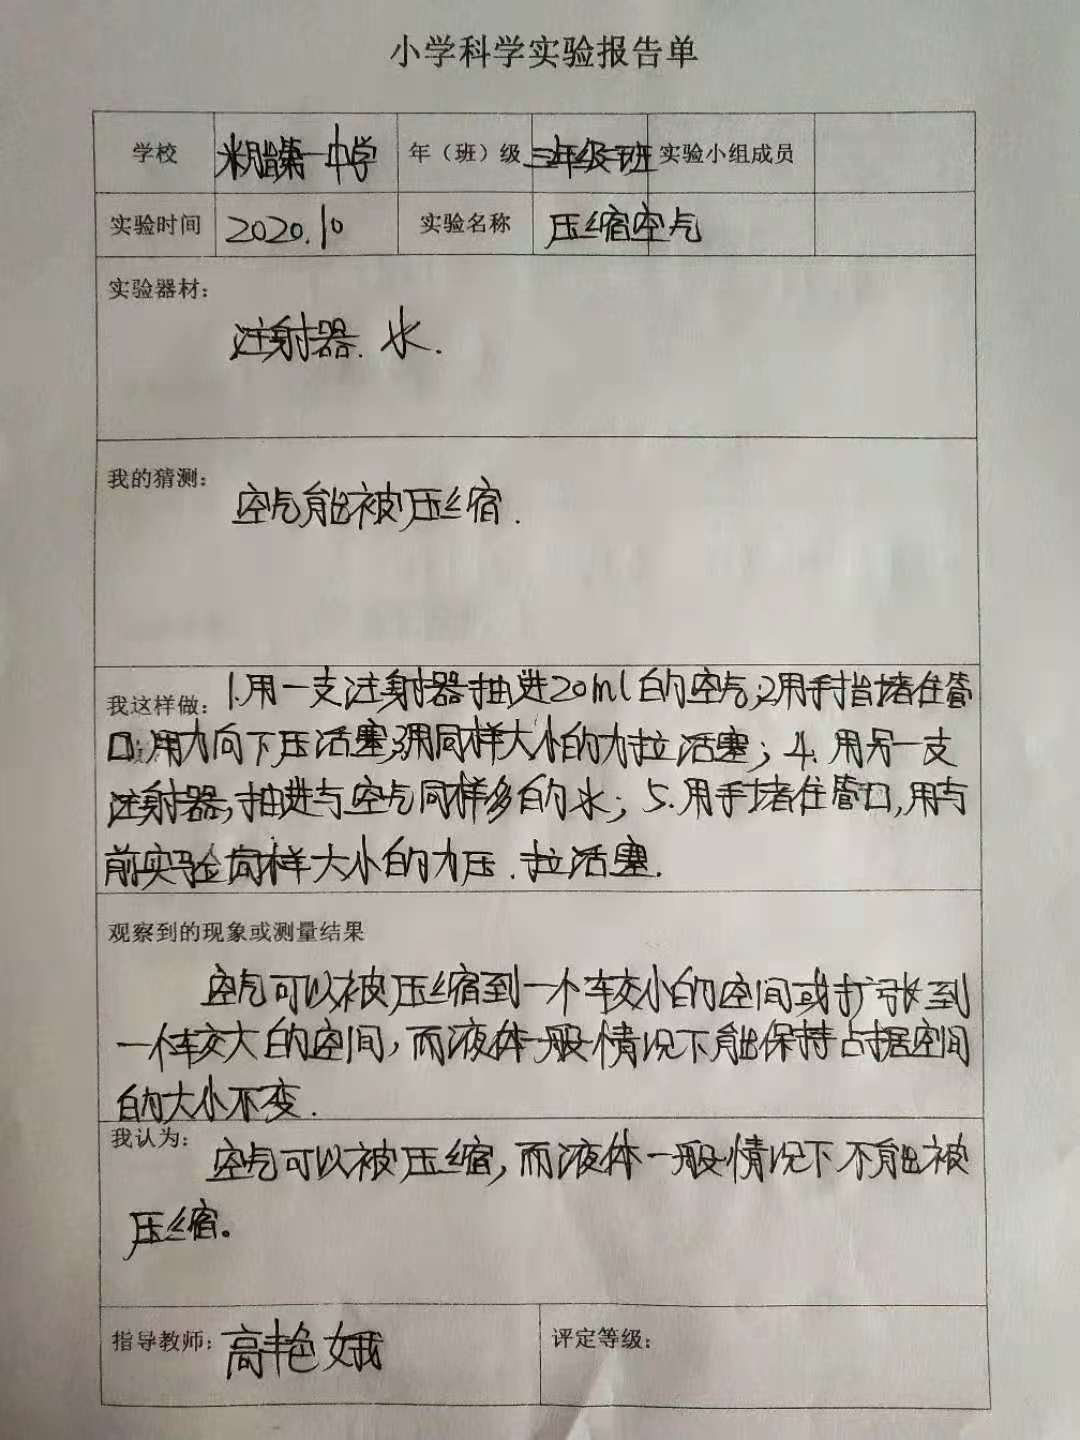 小学科学实验报告单
学校 米脂第一中学 年（班）级 三年级三班 实验小组成员
实验时间 2020.10 实验名称 压缩空气
实验器材：
注射器. 水.
我的猜测：
空气能被压缩.
我这样做： 1.用一支注射器抽进20ml的空气;2用手指堵住管
口;用力向下压活塞;3用同样大小的力拉活塞；4.用另一支
注射器,抽进与空气同样多的水；5.用手堵住管口,用与
前实验同样大小的力压.拉活塞.
观察到的现象或测量结果
空气可以被压缩到一个较小的空间或扩张到
一个较大的空间,而液体一般情况下能保持占据空间
的大小不变.
我认为：
空气可以被压缩,而液体一般情况下不能被
压缩。
指导教师： 高艳娥 评定等级：